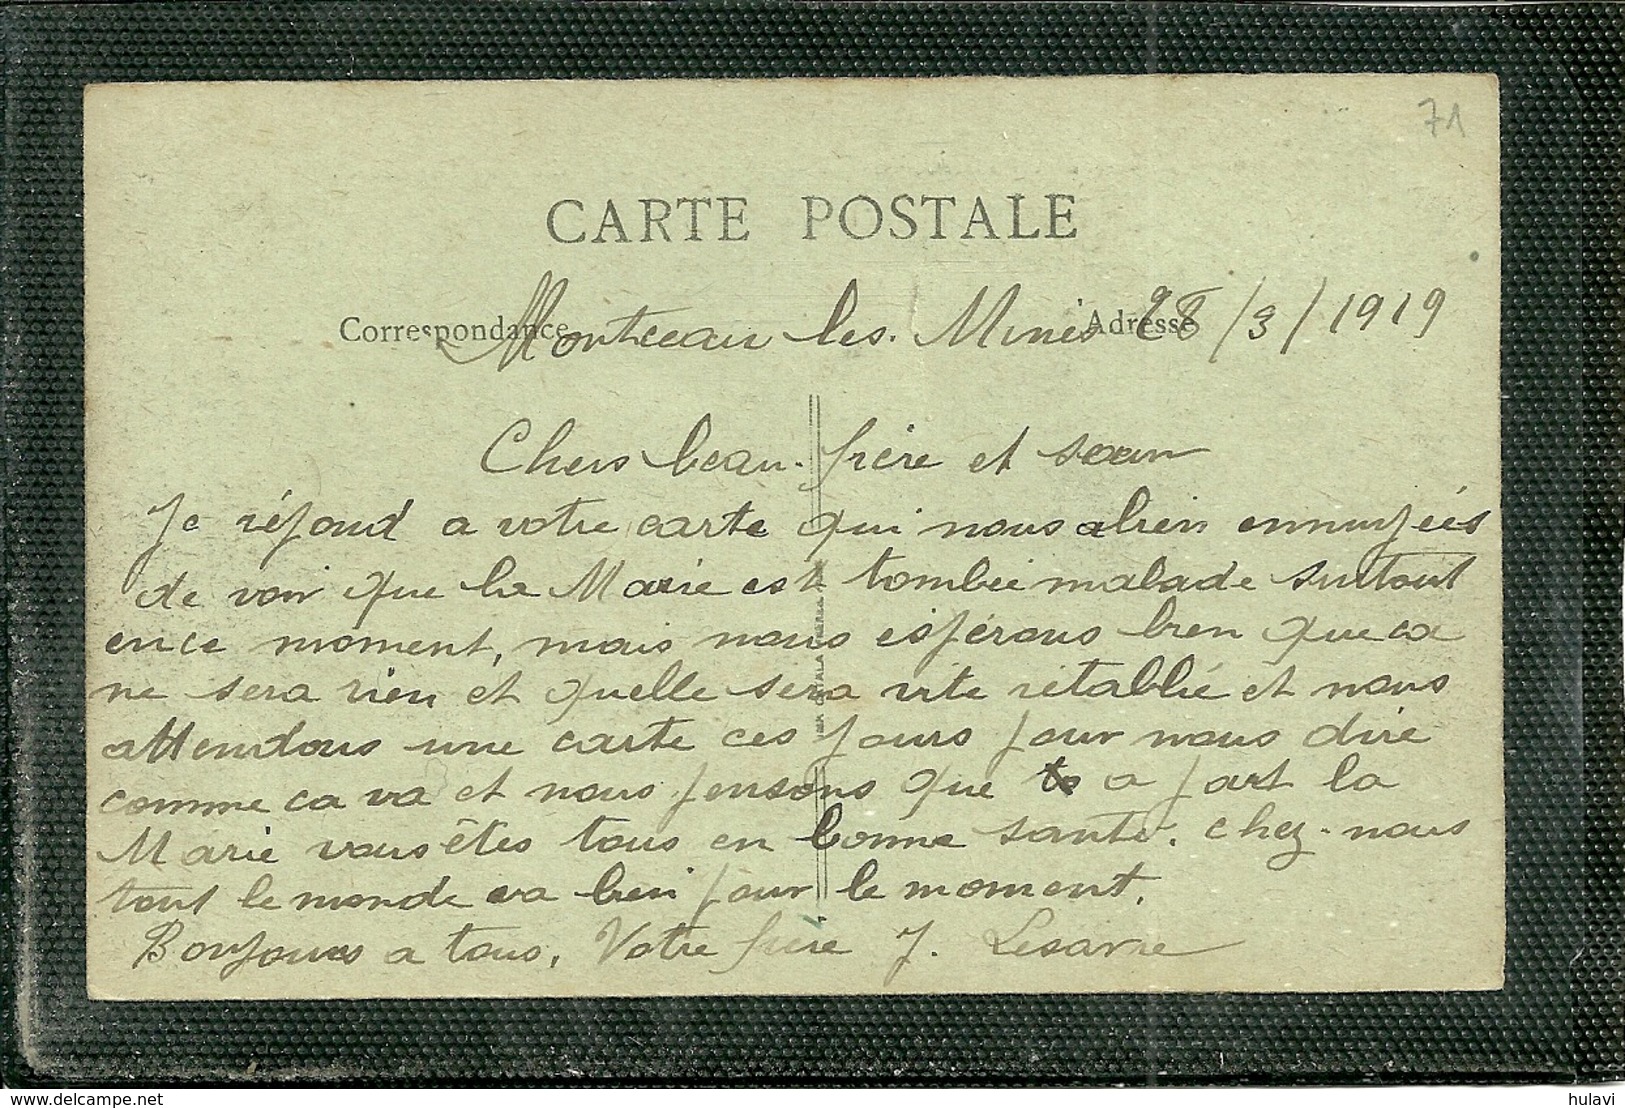 71
CARTE POSTALE
Correspondance
Adresse
Montceau les Mines 28/3/1919
Chers beau-frère et soeur
Je répond a votre carte qui nous a bien ennuyées
de voir que la Marie est tombée malade surtout
en ce moment, mais nous espérons bien que ca
ne sera rien et quelle sera vite rétablie et nous
attendons une carte ces jours pour nous dire
comme ca va et nous pensons que a part la
Marie vous êtes tous en bonne santé. Chez-nous
tout le monde va bien pour le moment.
Bonjours a tous, Votre frère J.
hulavi